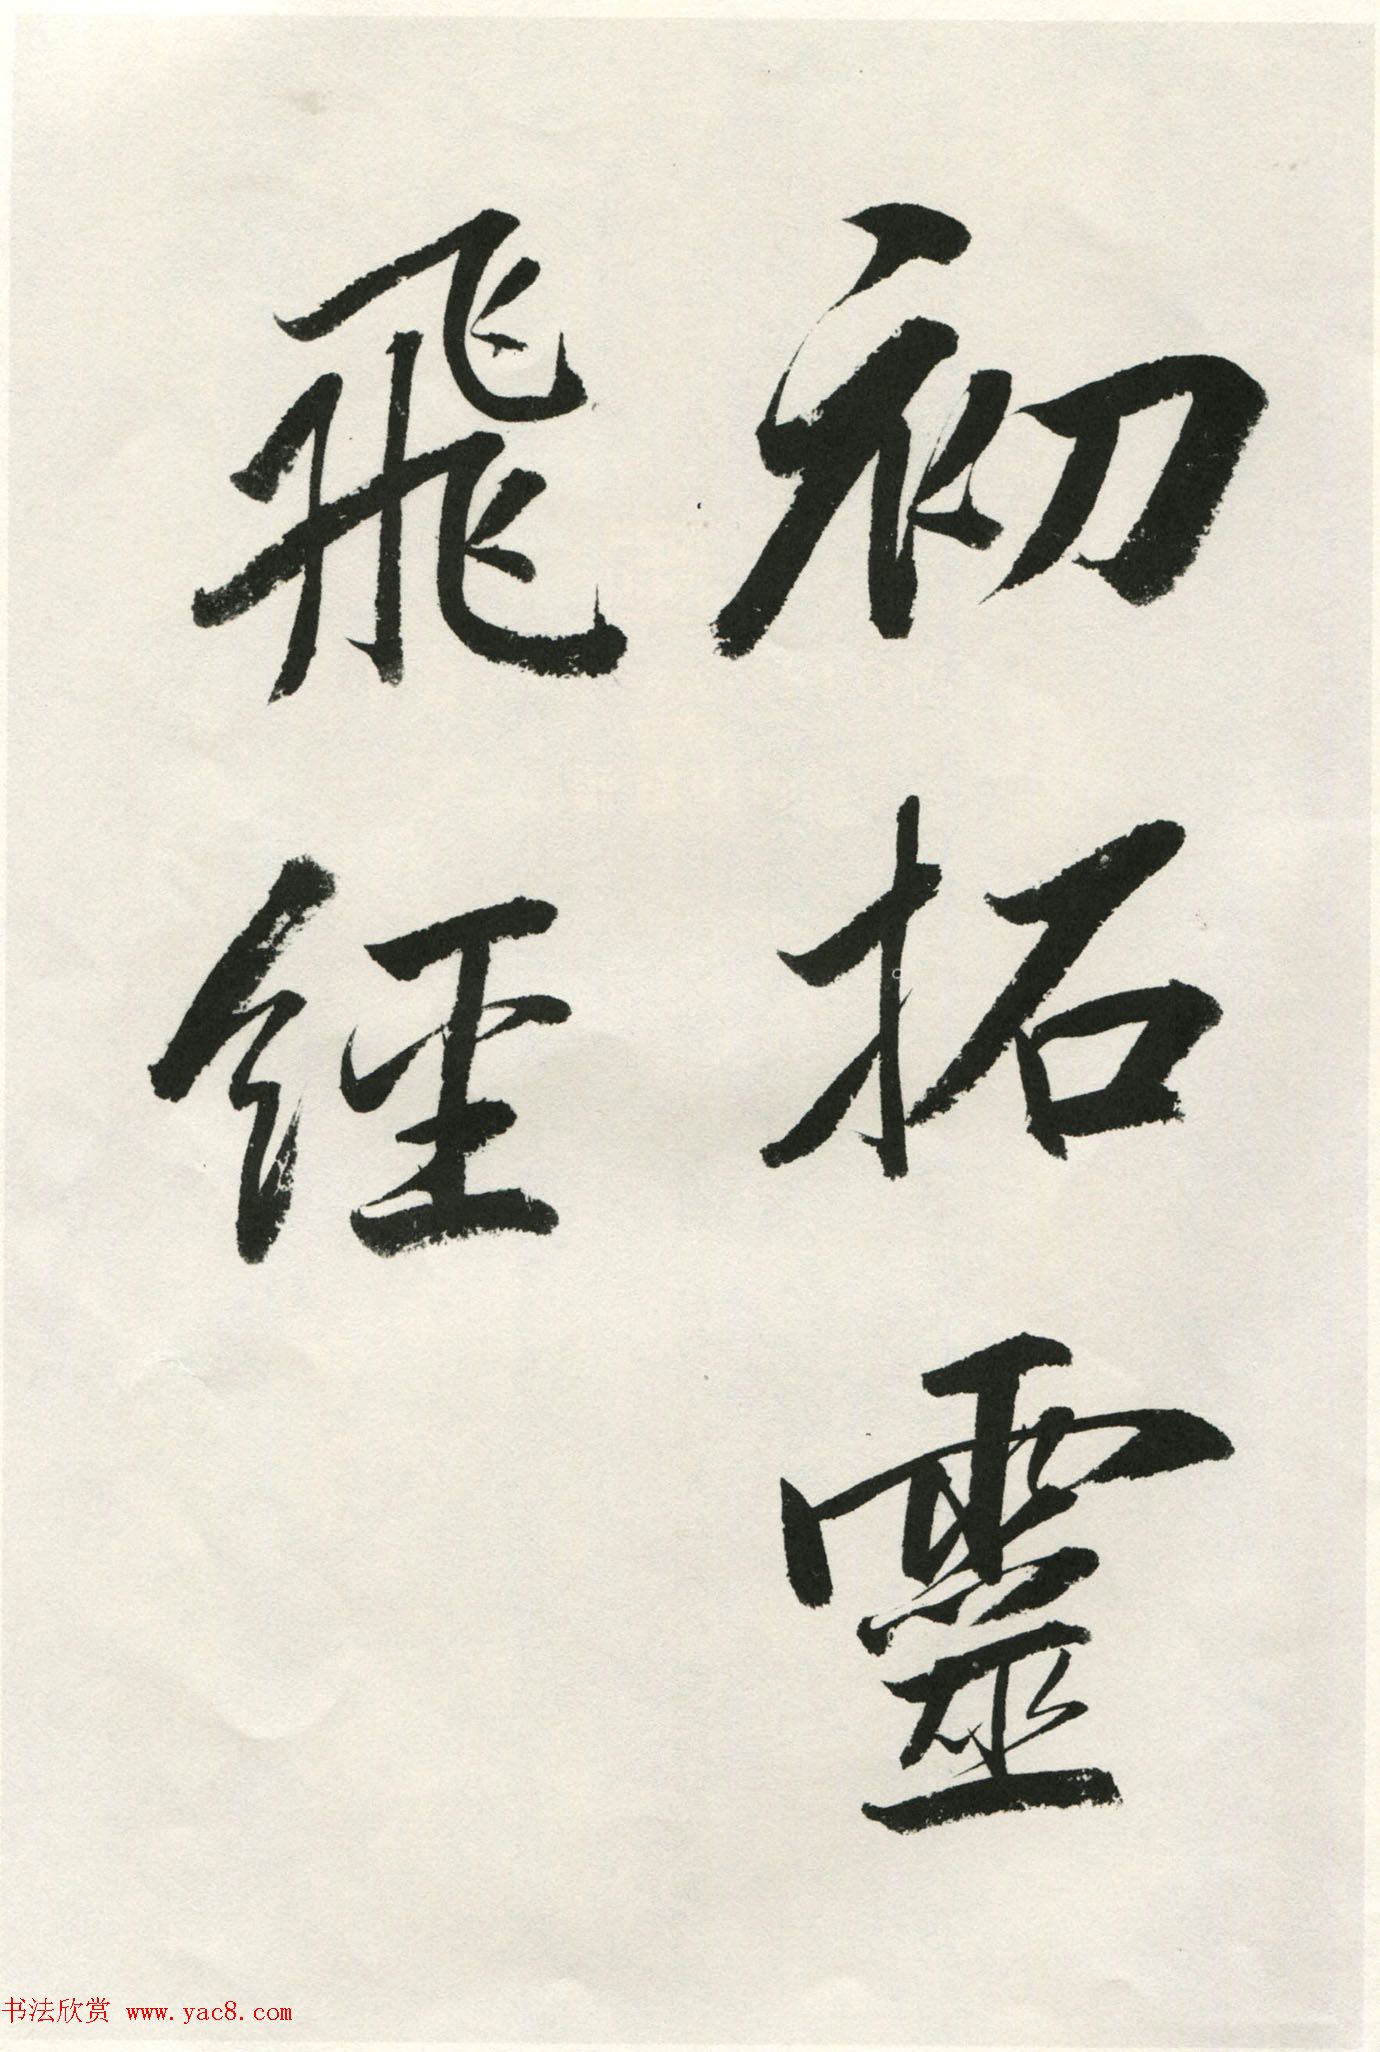 初拓靈
飛經
书法欣赏 www.yac8.com